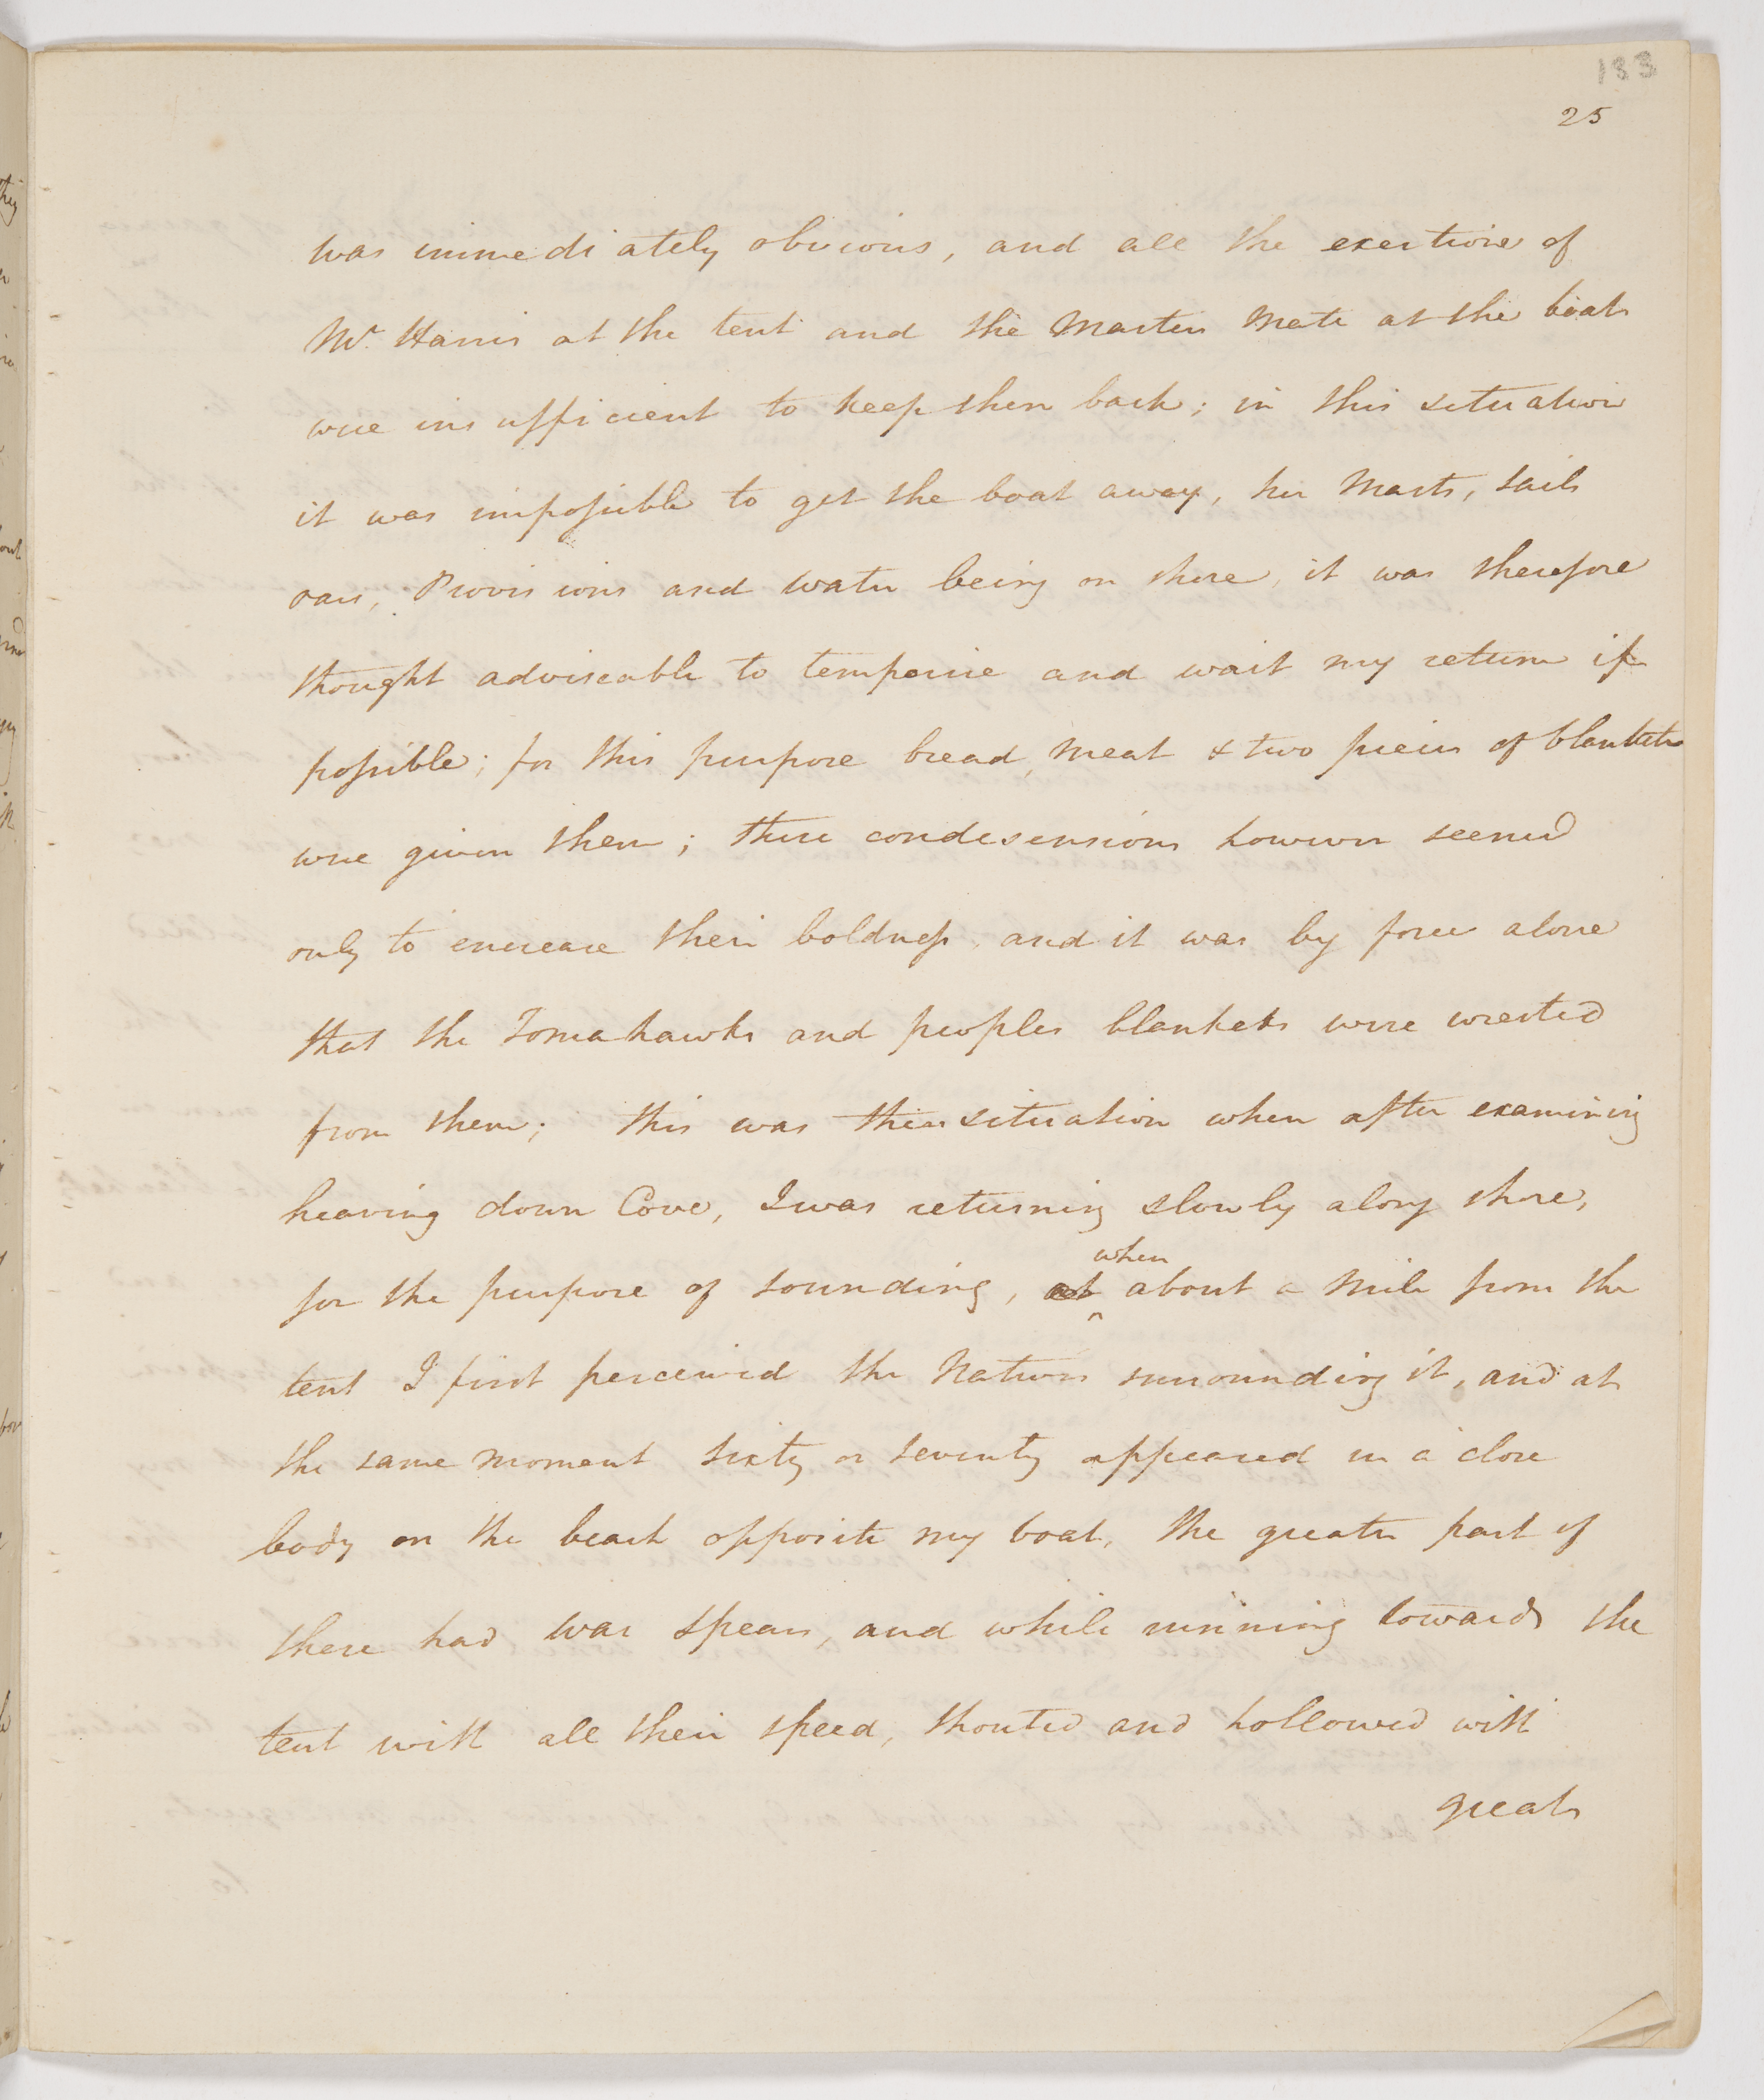 133
25
was immediately obvious, and all the exertions of
Mr. Harris at the tent and the Masters Mate at the boat
were insufficient to keep them back; in this situation
it was impossible to get the boat away, her Masts, Sails
oars, Provisions and water being on shore, it was therefore
thought adviseable to temporise and wait my return if
possible; for this purpose bread, meat & two pieces of blankets
were given them; these condesensions however seemed
only to encrease their boldness, and it was by force alone
that the Tomahawks and peoples blankets were wrested
from them; this was their situation when after examining
heaving down Cove, I was returning slowly along shore,
for the purpose of sounding, at when about a Mile from the
tent I first perceived the Natives surrounding it, and at
the same moment sixty or seventy appeared in a close
body on the beach opposite my boat, the greater part of
these had war spears, and while running towards the
tent with all their speed, shouted and hollowed with
great